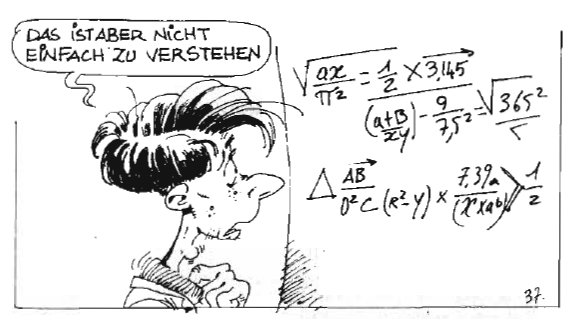 DAS IST ABER NICHT
EINFACH ZU VERSTEHEN
√ax/π² = 1/2 × 3,145
(a+B/xy) - 9/7,5² = √365²/5
△ AB/D²C (R²-Y) × 7,39a/(x²×aᵇ) 1/2
37.